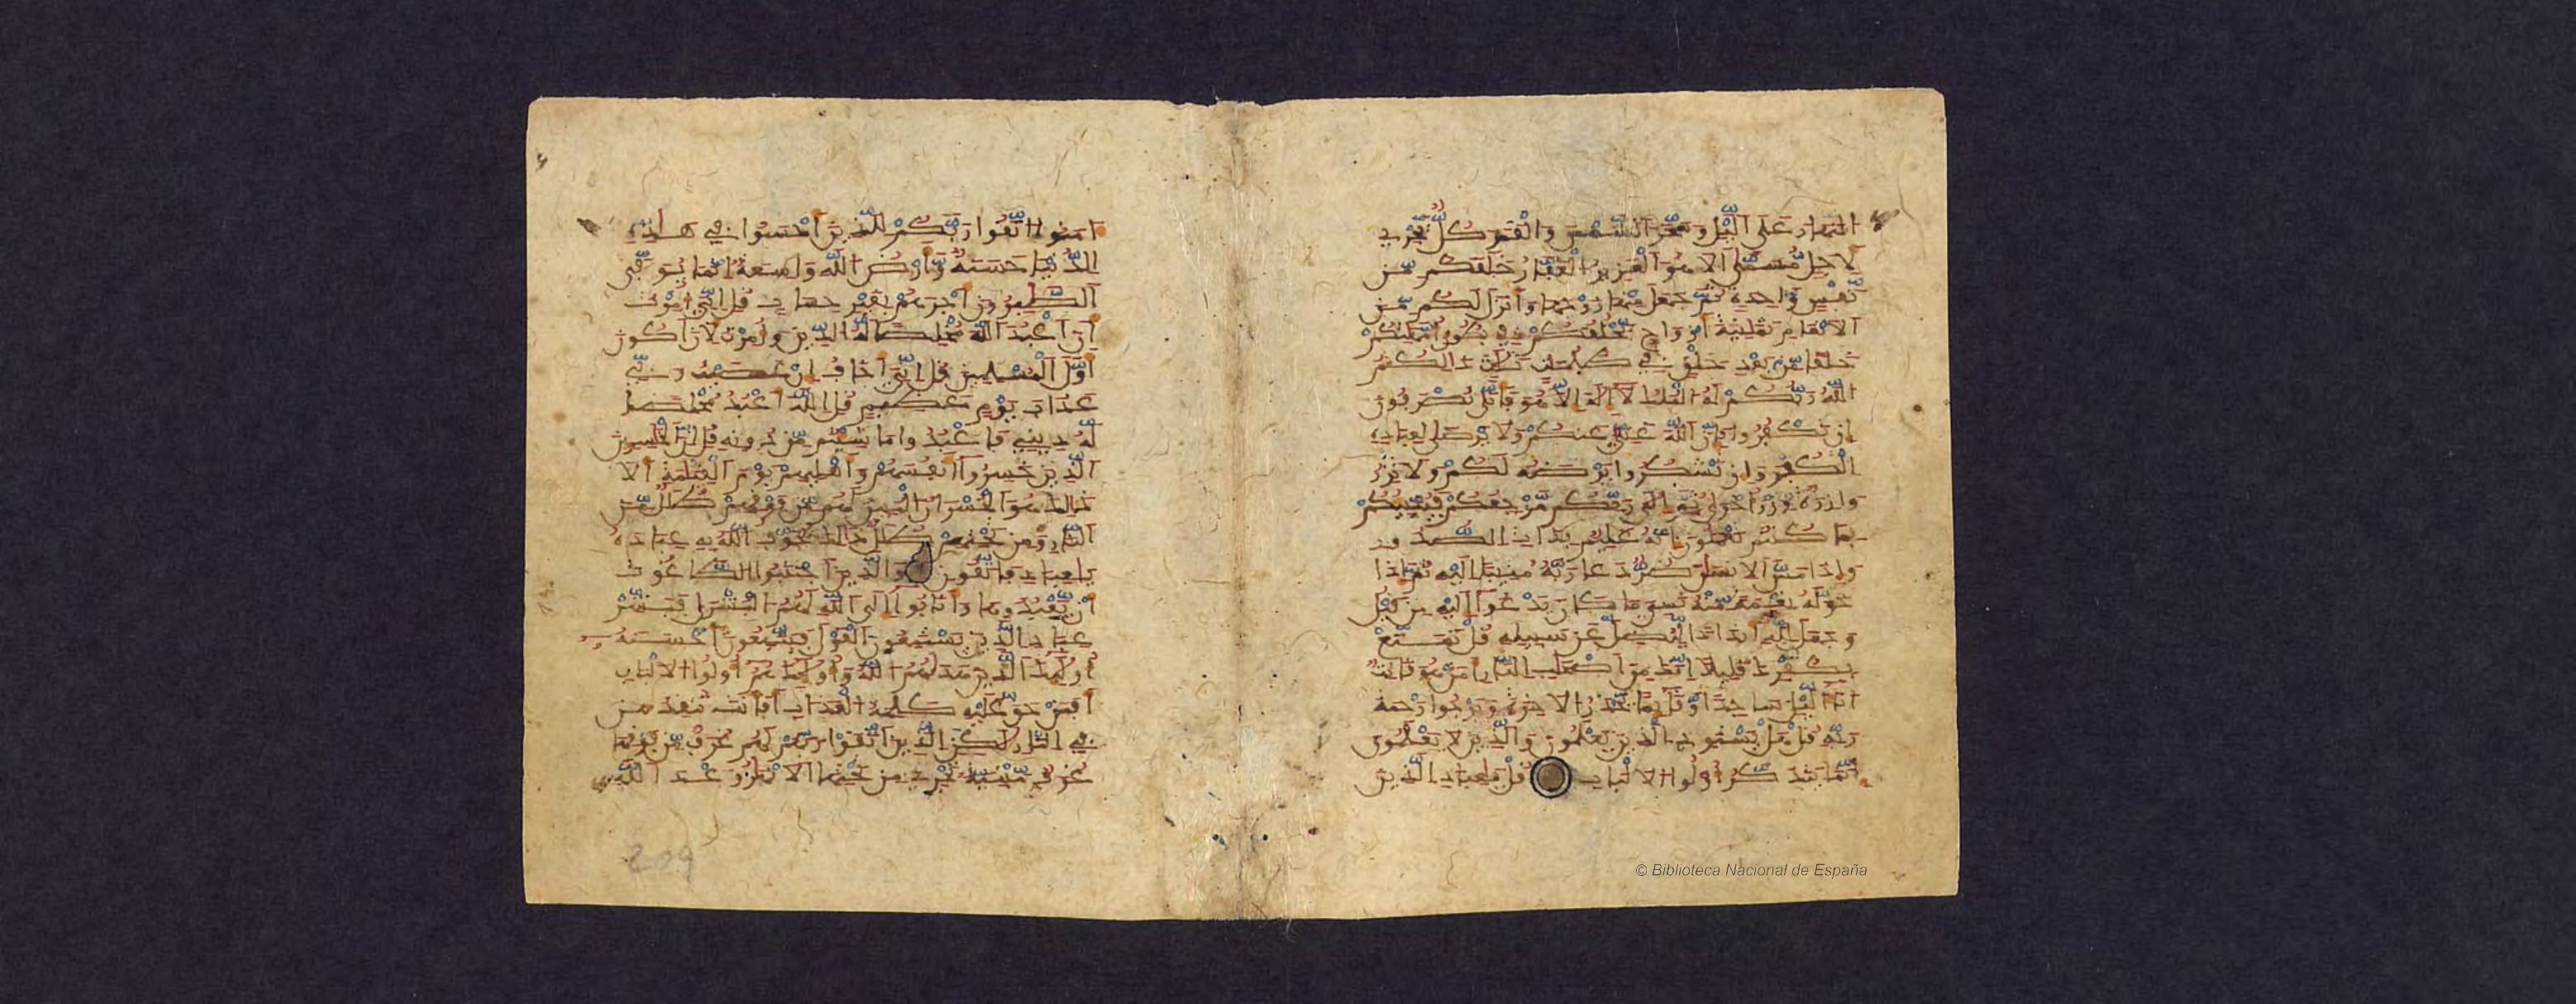 النهار على اليل وسخر الشمس والقمر كل يجري
لاجل مسمى الا هو العزيز الغفار خلقكم من
نفس واحدة ثم جعل منها زوجها وانزل لكم من
الانعام ثمنية ازواج يخلقكم في بطون امهتكم
خلقا من بعد خلق في ظلمت ثلث ذالكم
الله ربكم له الملك لا اله الا هو فانى تصرفون
ان تكفروا فان الله غني عنكم ولا يرضى لعباده
الكفر وان تشكروا يرضه لكم ولا تزر
وازرة وزر اخرى ثم الى ربكم مرجعكم فينبئكم
بما كنتم تعملون انه عليم بذات الصدور
واذا مس الانسن ضر دعا ربه منيبا اليه ثم اذا
خوله نعمة منه نسي ما كان يدعوا اليه من قبل
وجعل لله اندادا ليضل عن سبيله قل تمتع
بكفرك قليلا انك من اصحب النار امن هو قانت
انا اليل ساجدا وقايما يحذر الاخرة ويرجوا رحمة
ربه قل هل يستوي الذين يعلمون والذين لا يعلمون
انما يتذكر اولوا الالباب قل يعباد الذين
امنوا اتقوا ربكم للذين احسنوا في هذه
الدنيا حسنة وارض الله واسعة انما يوفى
الصبرون اجرهم بغير حساب قل اني امرت
ان اعبد الله مخلصا له الدين وامرت لان اكون
اول المسلمين قل اني اخاف ان عصيت ربي
عذاب يوم عظيم قل الله اعبد مخلصا
له ديني فاعبدوا ما شيتم من دونه قل ان الخسرين
الذين خسروا انفسهم واهليهم يوم القيمة الا
ذالك هو الخسران المبين لهم من فوقهم ظلل من
النار ومن تحتهم ظلل ذالك يخوف الله به عباده
يعباد فاتقون والذين اجتنبوا الطاغوت
ان يعبدوها وانابوا الى الله لهم البشرى فبشر
عباد الذين يستمعون القول فيتبعون احسنه
اوليك الذين هديهم الله واوليك هم اولوا الالباب
افمن حق عليه كلمة العذاب افانت تنقذ من
في النار لكن الذين اتقوا ربهم لهم غرف من فوقها
غرف مبنية تجري من تحتها الانهر وعد الله
209
© Biblioteca Nacional de España